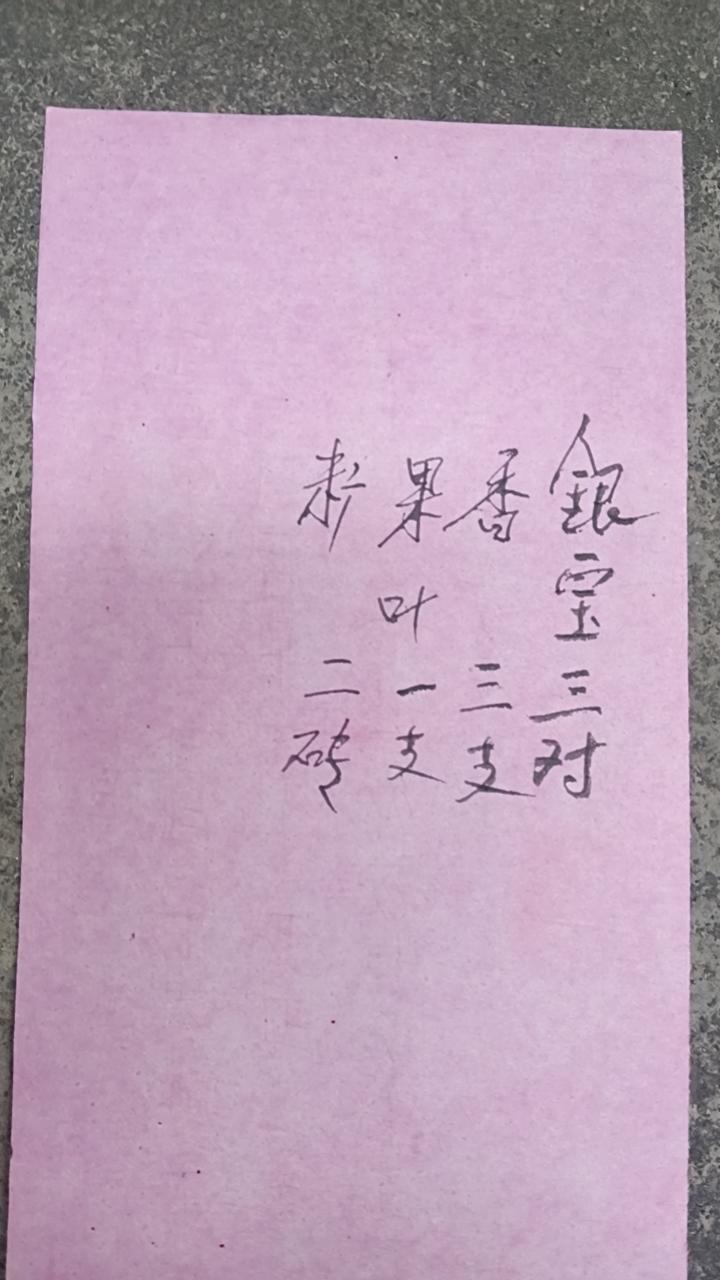 銀宝三对
香三支
果叶一支
二砖